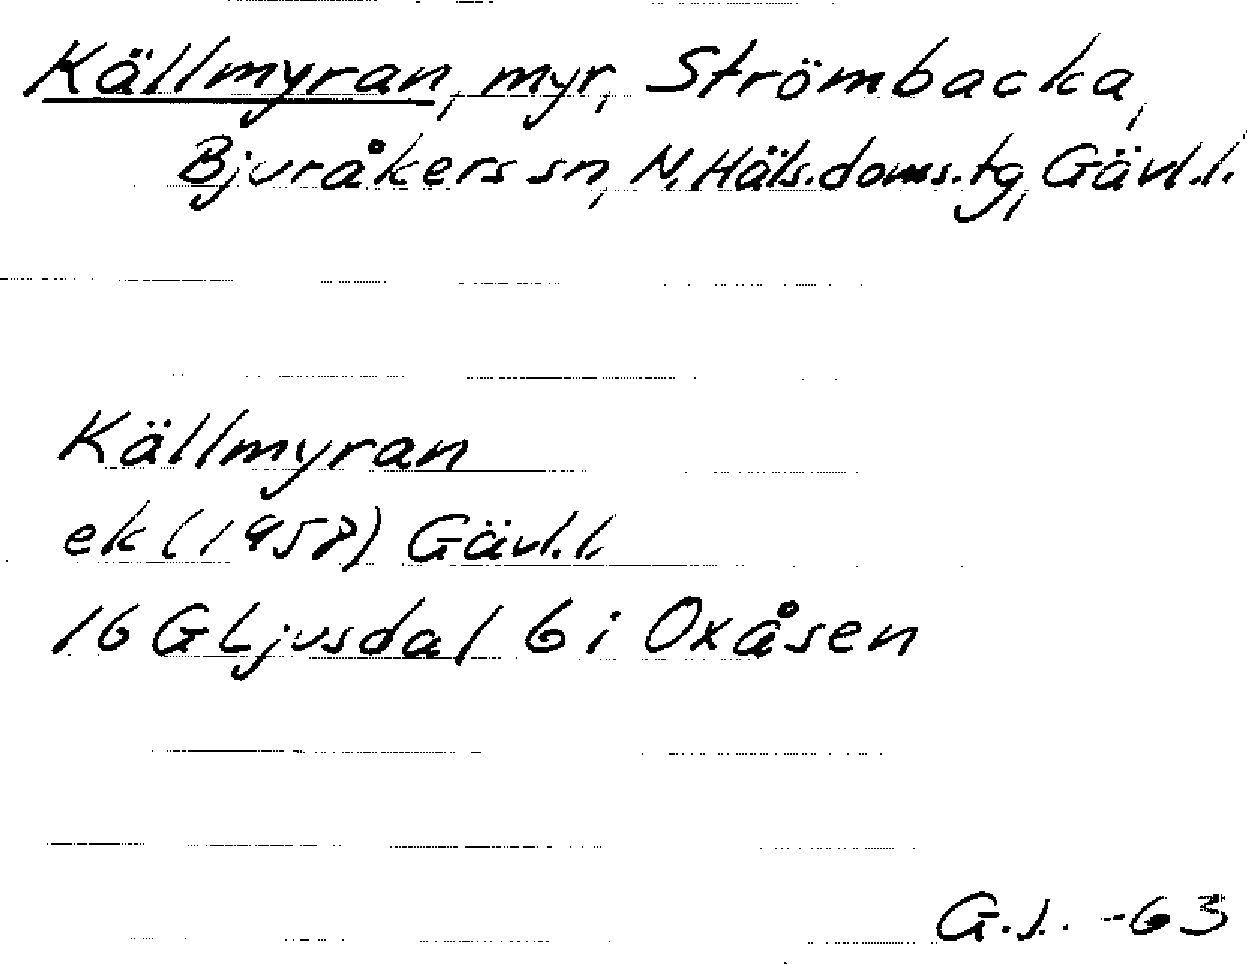 Källmyran, myr, Strömbacka,
Bjuråkers sn, N. Häls. doms. tg, Gävl. l.
Källmyran
ek (1958) Gävl. l.
16 G Ljusdal 6 i Oxåsen
G.J. -63